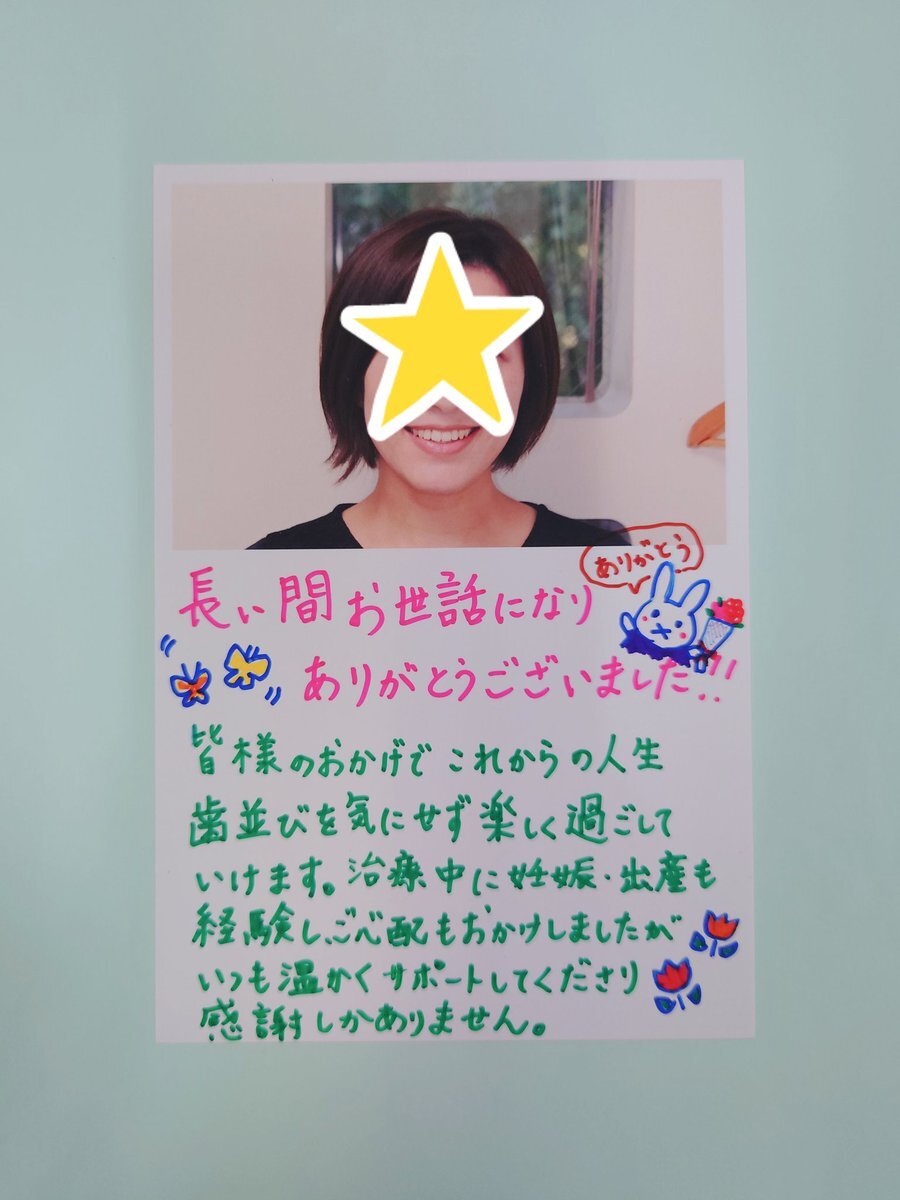 ありがとう
長い間お世話になり
ありがとうございました!!
皆様のおかげで これからの人生
歯並びを気にせず楽しく過ごして
いけます。治療中に妊娠・出産も
経験し、ご心配もおかけしましたが
いつも温かくサポートしてくださり
感謝しかありません。